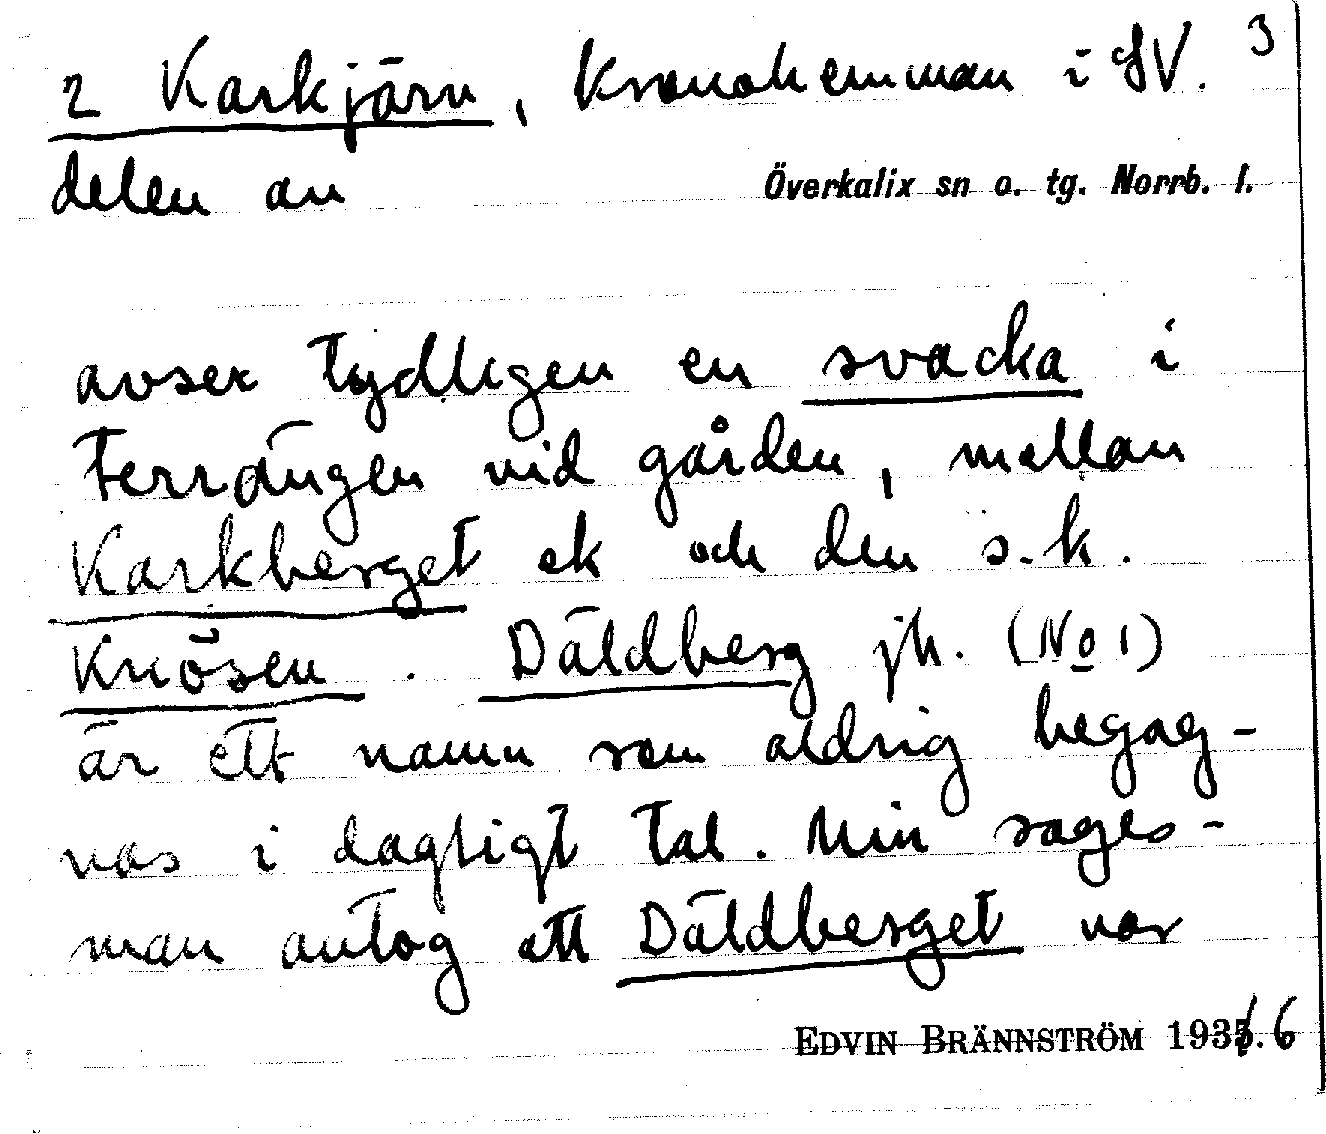 2 Karkjärn, Kronohemman i SV. 3
delen av Överkalix sn o. tg. Norrb. l.
avser tydligen en svacka i
terrängen vid gården, mellan
Karkberget ek och den s.k.
Knösen. Däldberg jh. (No 1)
är ett namn som aldrig begag-
nas i dagligt tal. Min sages-
man antog att Däldberget var
EDVIN BRÄNNSTRÖM 193 6